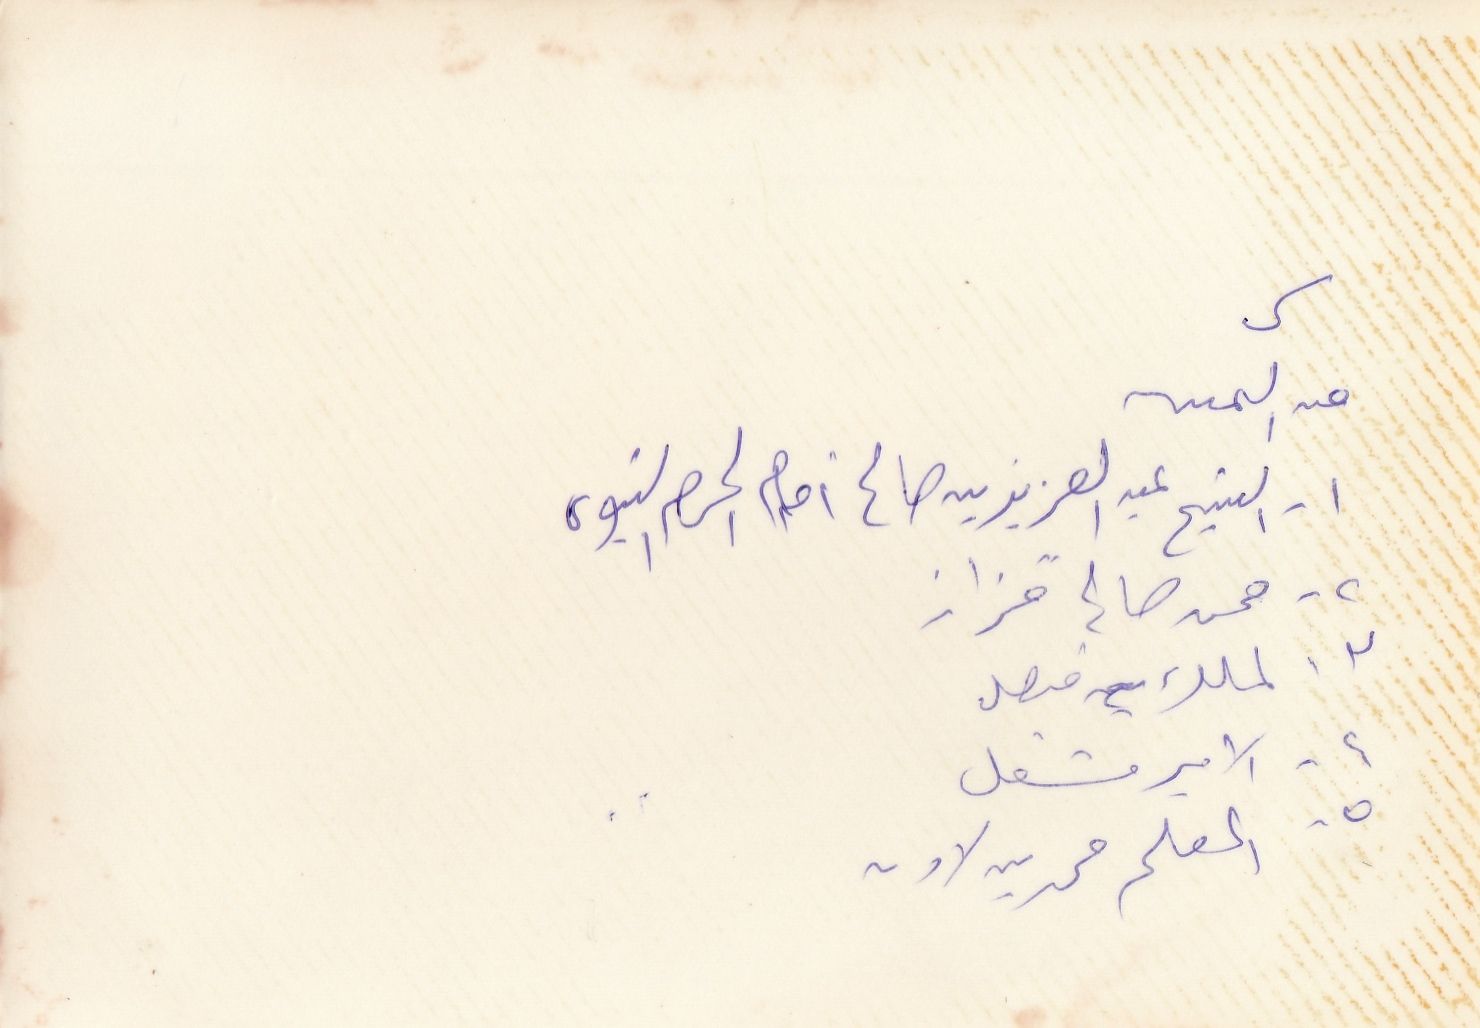 من اليمين
١- الشيخ عبد العزيز بن صالح امام الحرم النبوي
٢- محمد صالح قزاز
٣- الملك فيصل
٤- الامير مشعل
٥- المعلم محمد بن لادن